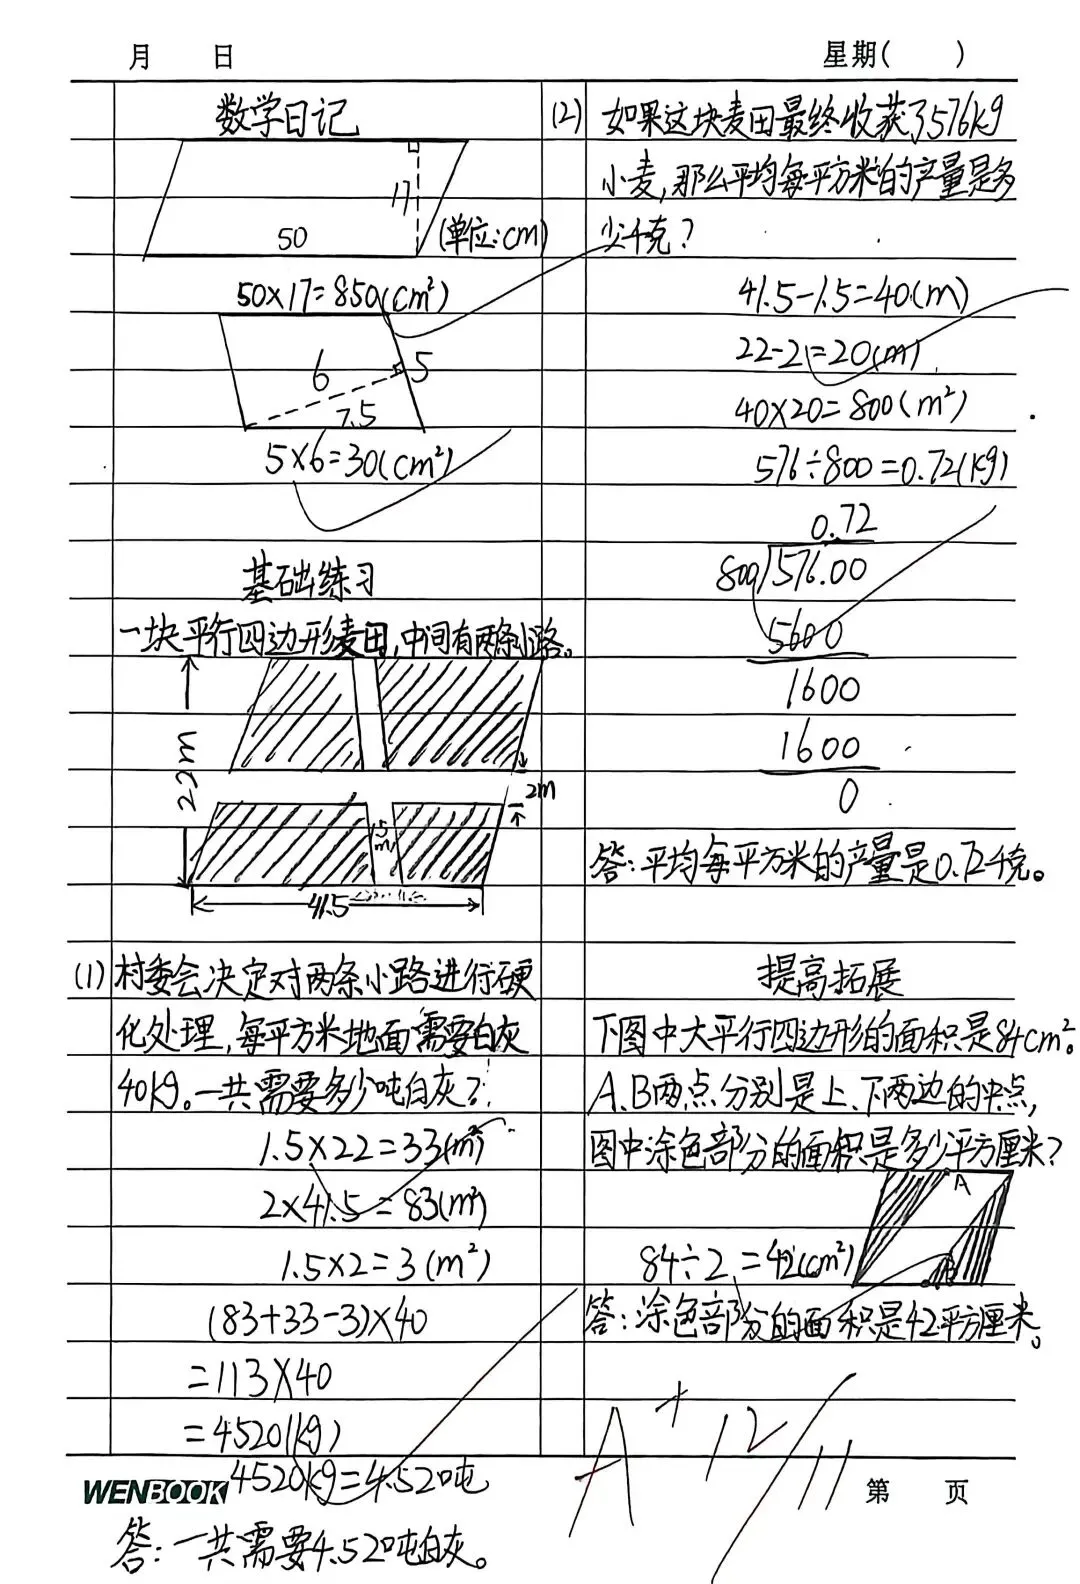 月 日 星期( )
数学日记
17
50
(单位:cm)
50×17=850(cm²)
6
5
7.5
5×6=30(cm²)
基础练习
一块平行四边形麦田,中间有两条小路。
22m
2m
1.5m
41.5
(1) 村委会决定对两条小路进行硬
化处理,每平方米地面需要白灰
40kg。一共需要多少吨白灰?
1.5×22=33(m²)
2×41.5=83(m²)
1.5×2=3(m²)
(83+33-3)×40
=113×40
=4520(kg)
4520kg=4.52吨
答:一共需要4.52吨白灰。
(2) 如果这块麦田最终收获了576kg
小麦,那么平均每平方米的产量是多
少千克?
41.5-1.5=40(m)
22-2=20(m)
40×20=800(m²)
576÷800=0.72(kg)
0.72
800)576.00
5600
1600
1600
0
答:平均每平方米的产量是0.72千克。
提高拓展
下图中大平行四边形的面积是84cm²。
A、B两点分别是上、下两边的中点,
图中涂色部分的面积是多少平方厘米?
A
B
84÷2=42(cm²)
答:涂色部分的面积是42平方厘米。
A+ 12/11
WENBOOK
第 页